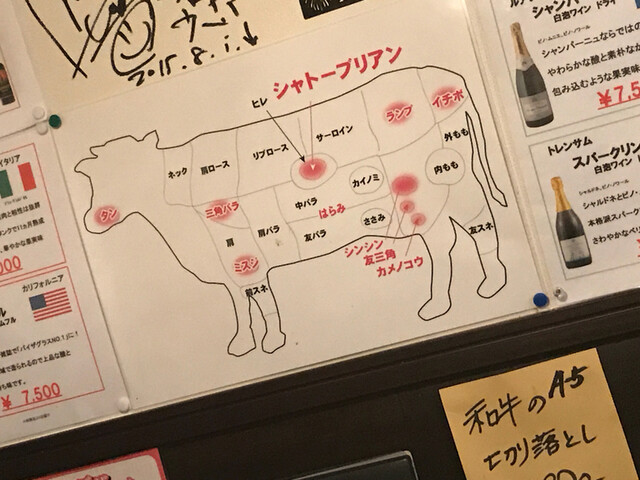 2015.8.1.
シャトーブリアン
ヒレ
サーロイン
リブロース
肩ロース
ネック
ランプ
イチボ
外もも
内もも
カイノミ
中バラ
はらみ
ささみ
友バラ
三角バラ
肩バラ
肩
ミスジ
タン
前スネ
友スネ
シンシン
友三角
カメノコウ
シャンパー
白泡ワイン ドライ
シャンパーニュならではの
やわらかな酸と素朴なか
包み込むような果実味
¥7,5
トレンサム
スパークリン
白泡ワイン
シャルドネ、ピノ・ノワール
シャルドネとピノ
本格派スパーク
さわやかなベリ
イタリア
000
カリフォルニア
¥ 7,500
和牛の A5
切り落とし